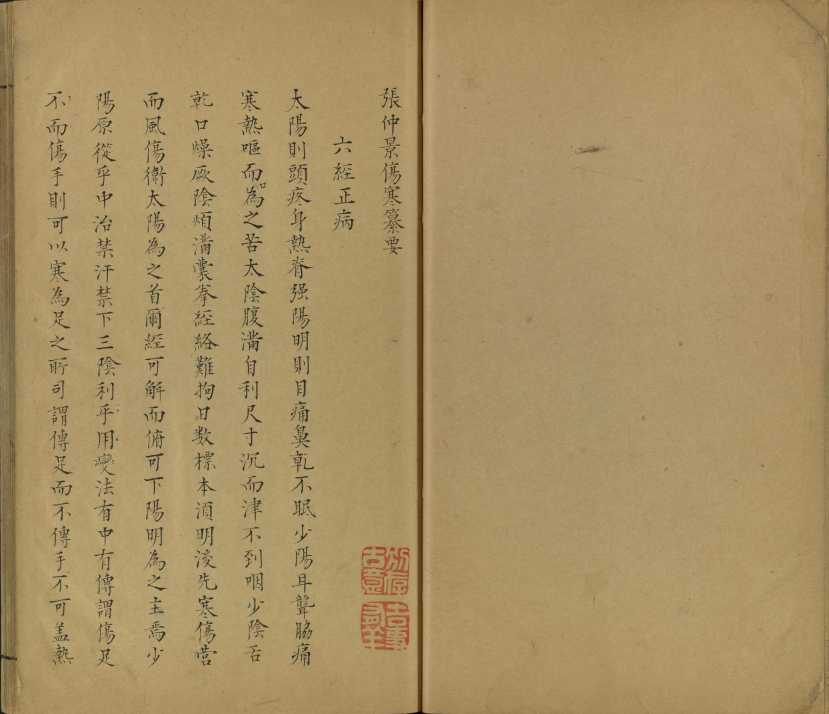 張仲景傷寒纂要
六經正病
太陽則頭疼身熱脊强陽明則目痛鼻乾不眠少陽耳聾脇痛
寒熱嘔而口為之苦太陰腹滿自利尺寸沉而津不到咽少陰舌
乾口燥厥陰煩滿囊拳經絡難拘日数標本須明後先寒傷营
而風傷衛太陽為之首爾經可解而俯可下陽明為之主焉少
陽原從乎中治禁汗禁下三陰利乎用變法有中有傳謂傷足
不而傷手則可以寒為足之所司謂傳足而不傳手不可盖熱